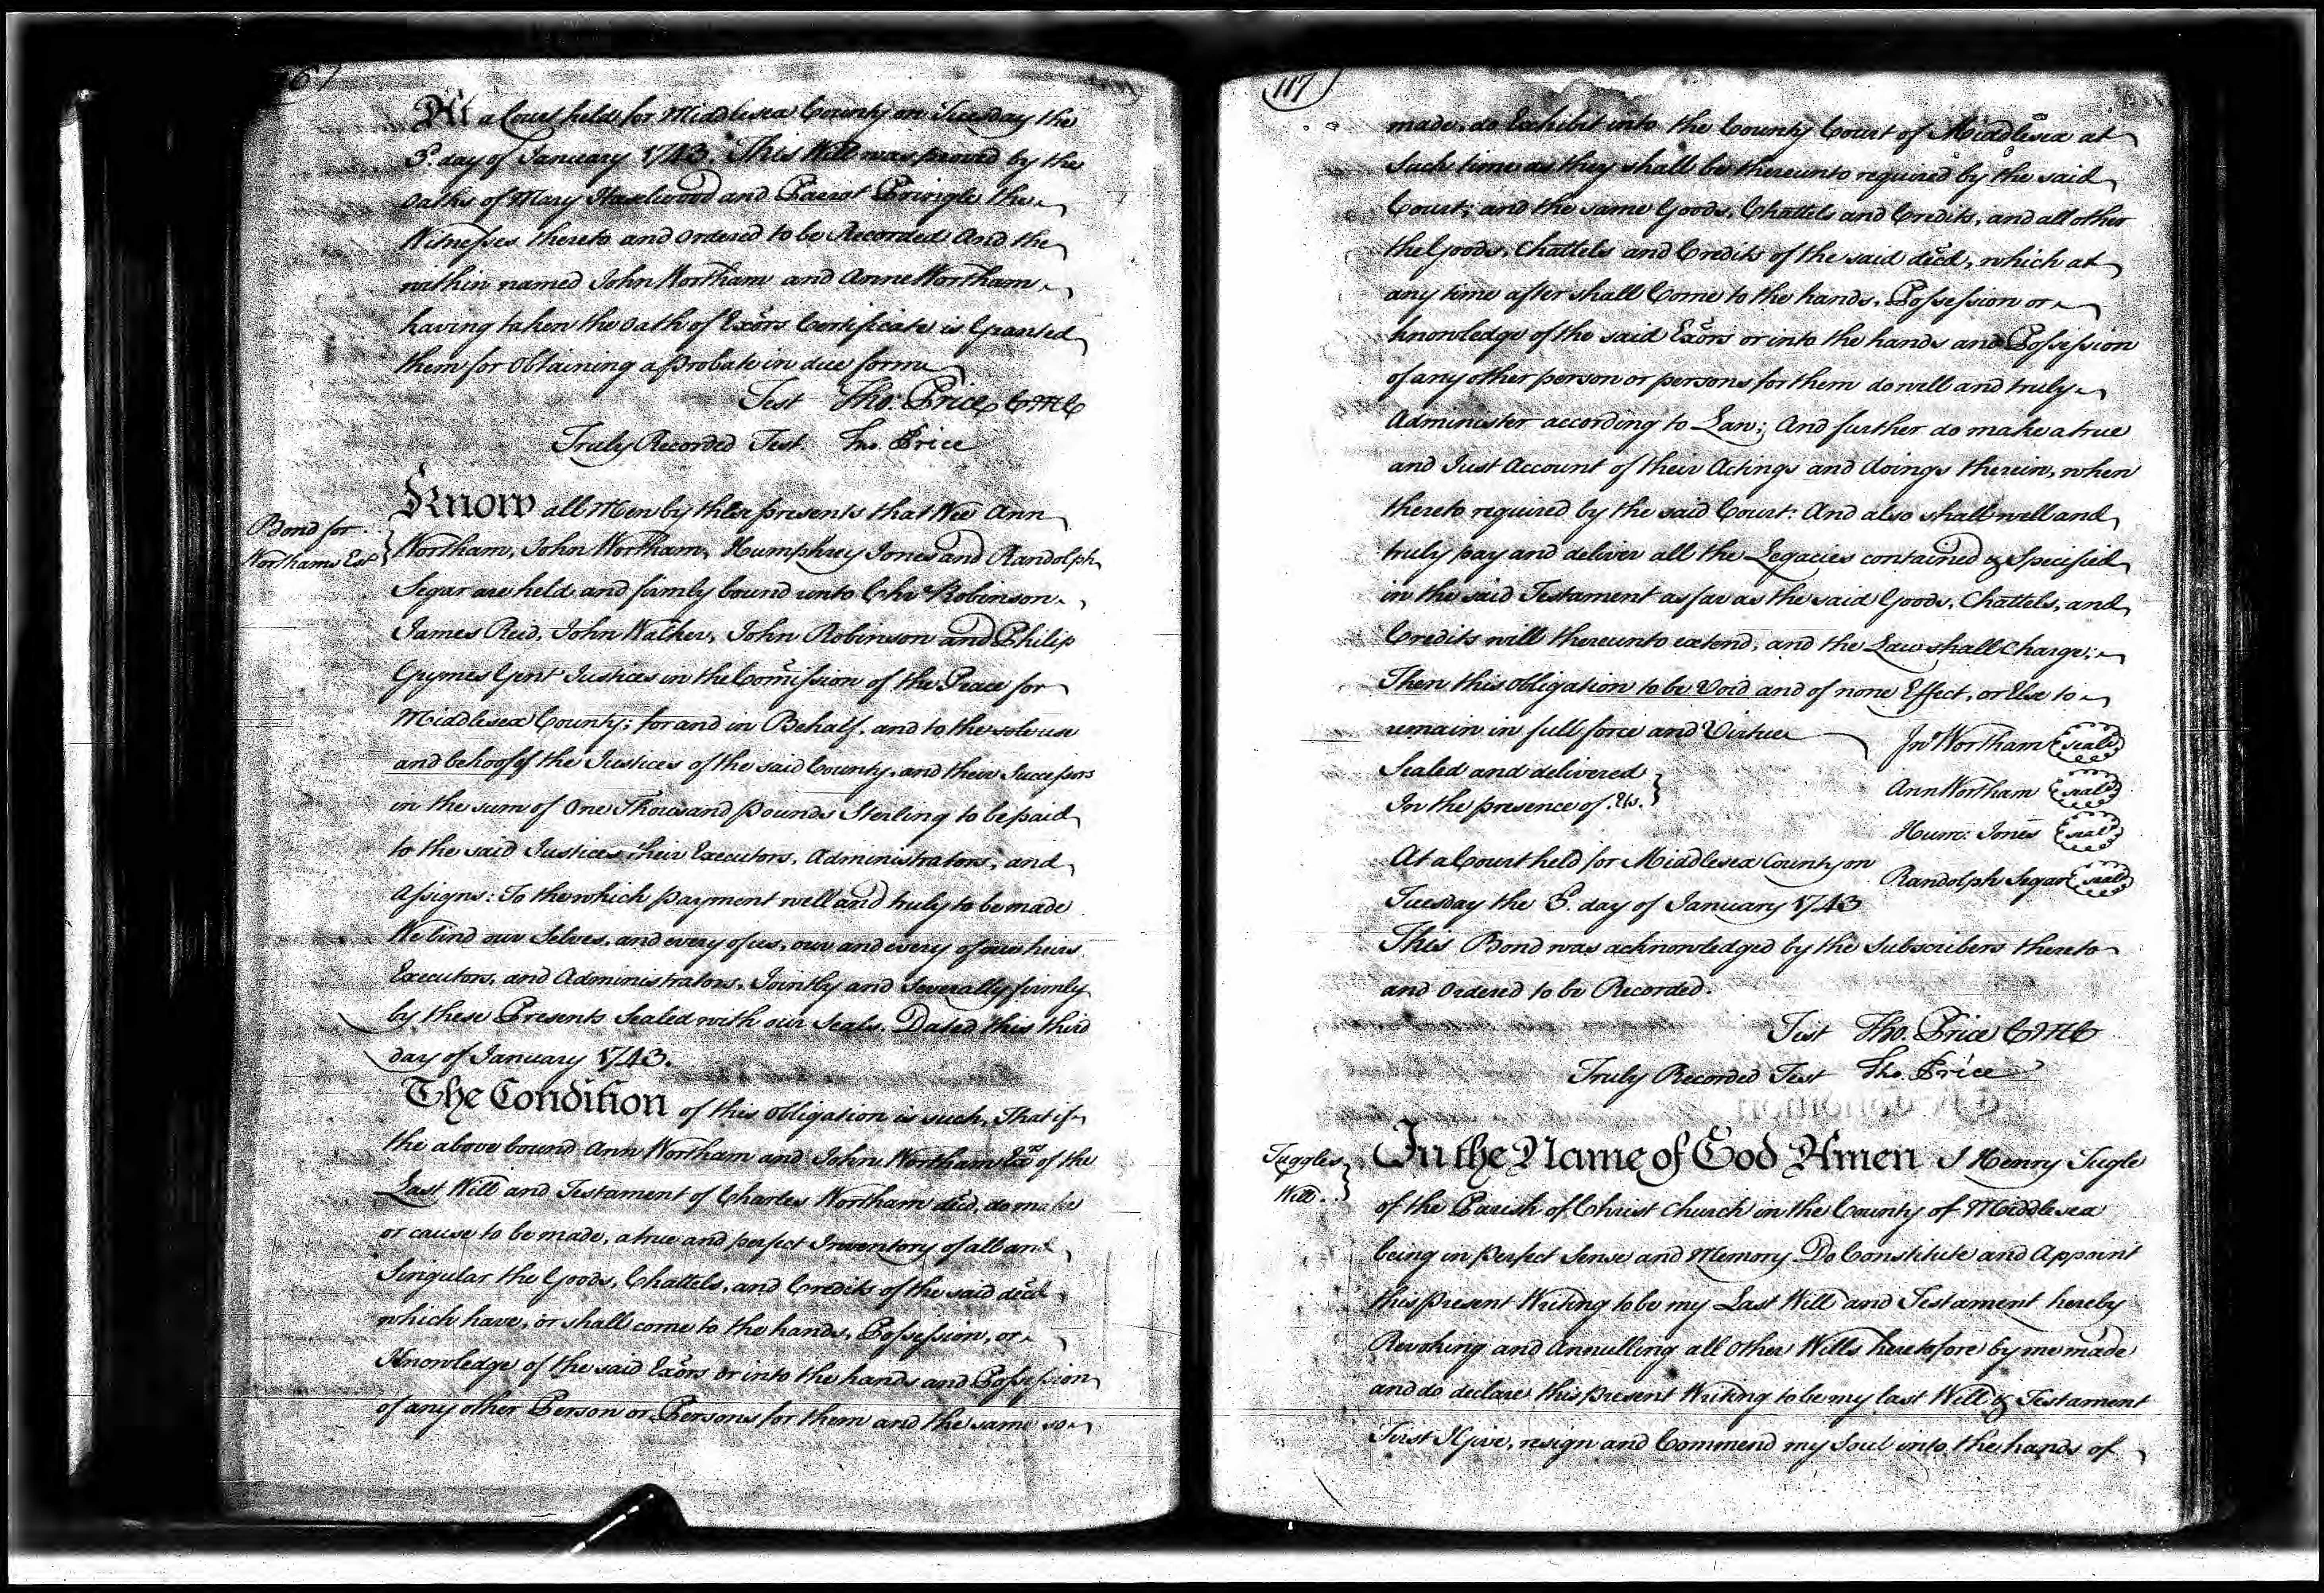 6)
At a Court held for Middlesex County on Tuesday the
3.d day of January 1743. This Will was proved by the
Oaths of Mary Haselwood and Parrot Pringle the
Witnesses thereto and Ordered to be Recorded And the
within named John Wortham and Anne Wortham
having taken the Oath of Exors Certificate is Granted
them for Obtaining a probate in due form
Test Tho. Price C M C
Truly Recorded Test Tho. Price
Bond for
Worthams Est
Know all Men by these presents that Wee Ann
Wortham, John Wortham, Humphrey Jones and Randolph
Segar are held and firmly bound unto Chr. Robinson
James Reid, John Walker, John Robinson and Philip
Grymes Gent Justices in the Comission of the Peace for
Middlesex County; for and in Behalf, and to the sole use
and behoof of the Justices of the said County, and their Successors
in the sum of One Thousand pounds Sterling to be paid
to the said Justices their Executors, Administrators, and
Assigns: To the which payment well and truly to be made
We bind our Selves, and every of us, our and every of our heirs
Executors, and Administrators, Jointly and Severally, firmly
by these Presents Sealed with our Seals. Dated this third
day of January 1743.
The Condition of this obligation is such, That if
the above bound Ann Wortham and John Wortham Exrs of the
Last Will and Testament of Charles Wortham decd, do make
or cause to be made, a true and perfect Inventory of all and
Singular the Goods, Chattels, and Credits of the said decd
which have, or shall come to the hands, Possession, or
Knowledge of the said Exors or into the hands and Possession
of any other Person or Persons for them and the same so
117
made, do Exhibit into the County Court of Middlesex at
Such time as they shall be thereunto required by the said
Court; and the same Goods, Chattels and Credits, and all other
the Goods, Chattels and Credits of the said decd, which at
any time after shall Come to the hands, Possession or
knowledge of the said Exors or into the hands and Possession
of any other person or persons for them do well and truly
Administer according to Law; And further do make a true
and Just Account of their Actings and doings therein, when
thereto required by the said Court: And also shall well and
truly pay and deliver all the Legacies contained & Specified
in the said Testament as far as the said Goods, Chattels, and
Credits will thereunto extend, and the Law shall Charge;
Then this obligation to be Void and of none Effect, or Else to
remain in full force and Virtue
Jno Wortham (seal)
Sealed and delivered
In the presence of. Us.
Ann Wortham (seal)
Hum: Jones (seal)
Randolph Segar (seal)
At a Court held for Middlesex County on
Tuesday the 3. day of January 1743
This Bond was acknowledged by the Subscribers thereto
and Ordered to be Recorded.
Test Tho. Price C M C
Truly Recorded Test Tho. Price
Tuggles
Will.
In the Name of God Amen I Henry Tugle
of the Parish of Christ Church in the County of Middlesex
being in perfect Sense and Memory Do Constitute and Appoint
this present Writing to be my Last Will and Testament hereby
Revoking and Annulling all other Wills heretofore by me made
and do declare this present Writing to be my last Will & Testament
First I Give, resign and Commend my Soul into the hands of